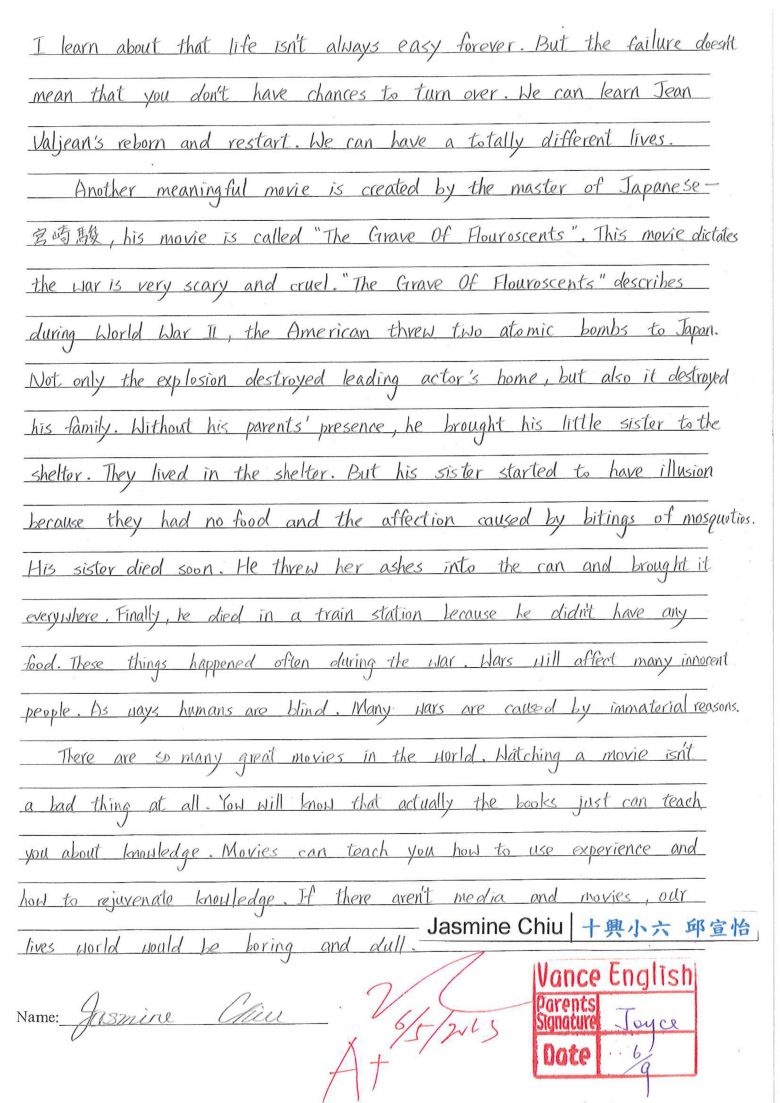 I learn about that life isn't always easy forever. But the failure doesn't
mean that you don't have chances to turn over. We can learn Jean
Valjean's reborn and restart. We can have a totally different lives.
Another meaningful movie is created by the master of Japanese—
宮崎駿, his movie is called "The Grave Of Flouroscents". This movie dictates
the war is very scary and cruel. "The Grave Of Flouroscents" describes
during World War II, the American threw two atomic bombs to Japan.
Not only the explosion destroyed leading actor's home, but also it destroyed
his family. Without his parents' presence, he brought his little sister to the
shelter. They lived in the shelter. But his sister started to have illusion
because they had no food and the affection caused by bitings of mosquotios.
His sister died soon. He threw her ashes into the can and brought it
everywhere. Finally, he died in a train station because he didn't have any
food. These things happened often during the war. Wars will affect many innorent
people. As ways humans are blind. Many wars are caused by immaterial reasons.
There are so many great movies in the world. Watching a movie isn't
a bad thing at all. You will know that actually the books just can teach
you about knowledge. Movies can teach you how to use experience and
how to rejuvenate knowledge. If there aren't media and movies, our
lives world would be boring and dull.
Jasmine Chiu | 十興小六 邱宣怡
Name: Jasmine Chiu
6/5/2013
A+
Vance English
Parents Signature Joyce
Date 6/9